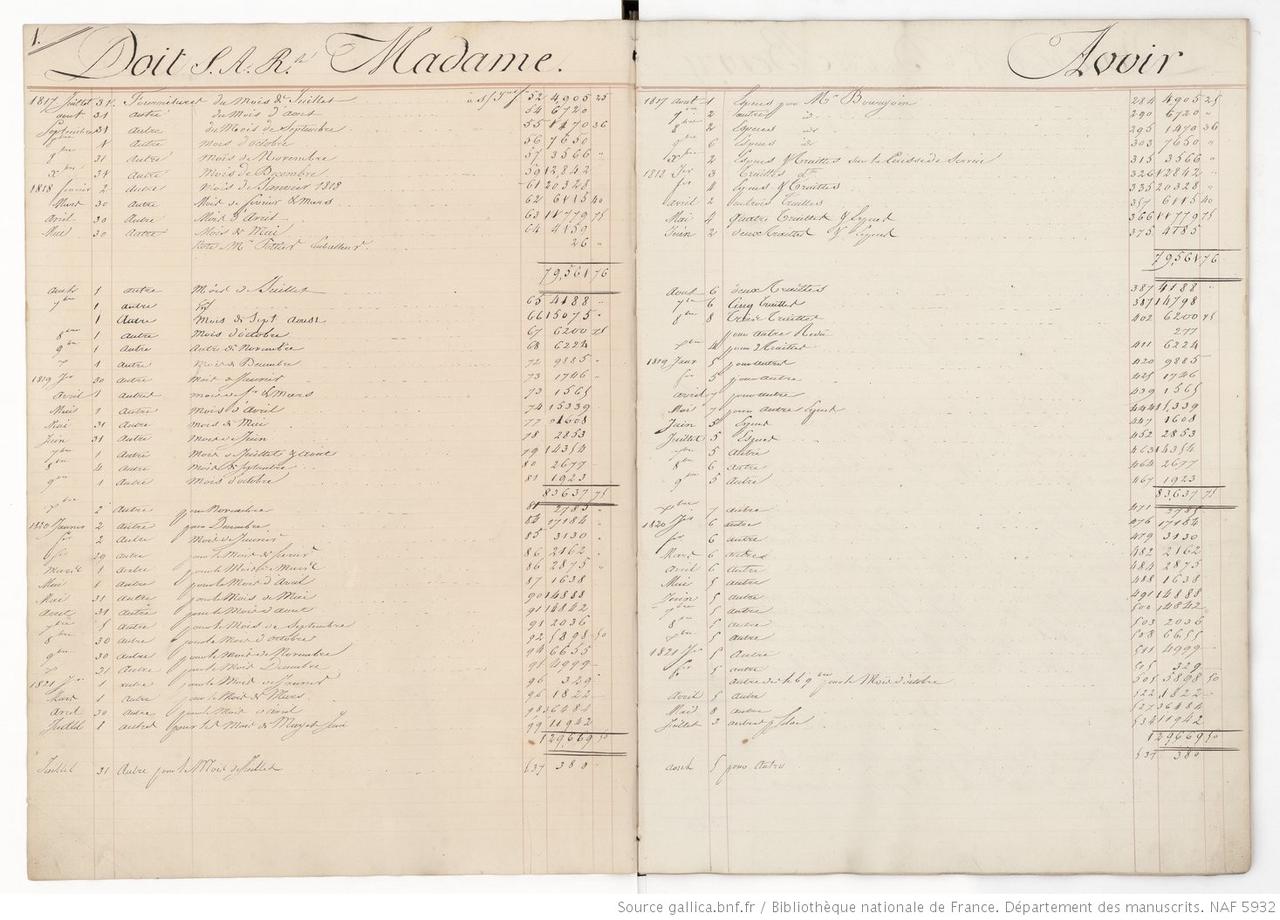 1.
Doit S.A.R. Madame.
1817 Juillet 31 Fournitures du Mois de Juillet 52 4,905 25
aout 31 autre du Mois d'aout 54 6720
Septembre 31 autre du Mois de Septembre 55 1470 36
autre mois d'octobre 56 7650
9 31 autre mois de Novembre 57 3566 "
Xbre 31 autre Mois de Decembre 59 12,842
1818 fevrier 2 autre mois de Janvier 1818 61 20328
Mars 30 autre Mois de fevrier & mars 62 6115 40
avril 30 autre Mois d'avril 63 11779 75
Mai 30 autre Mois de Mai 64 4159
26 "
79,561 76
aout 1 autre Mois de Juillet
7bre 1 autre 65 4188
1 autre mois de Sept 66 15075
8bre 1 autre mois d'octobre 67 6200 75
9bre 1 autre autre de Novembre 68 6224
1 autre mois de Decembre 72 9885
1819 30 autre mois de Janvier 73 1746
avril 1 autre mois de & Mars 73 1565
Mai 1 autre mois d'avril 74 15339
Mai 31 autre mois de Mai 77 1608
Juin 31 autre mois de Juin 78 2853
7bre 1 autre mois de Juillet & aout 79 14354
8bre 4 autre mois de Septembre 80 2677
9bre 1 autre mois d'octobre 81 1923
83,637 75
Xbre 2 autre pour Novembre 81 2785
1820 Janvier 2 autre pour Decembre 84 17184
2 autre mois de Janvier 85 3130
29 autre pour le Mois de fevrier 86 2162
1 autre pour le Mois de 86 2875
Mai 1 autre pour le Mois d'Avril 87 1638
Mai 31 autre pour le Mois de Mai 90 14888
aout 31 autre pour le Mois d'aout 91 14842
5 autre pour le Mois de Septembre 91 2036
8bre 30 autre pour le Mois d'octobre 92 5898 50
9bre 30 autre pour le Mois de Novembre 94 6655
31 autre pour le Mois Decembre 95 4999
1821 1 autre pour le Mois de Janvier 96 329
Mars 1 autre pour le Mois de Mars 96 1822
avril 30 autre pour le Mois d'avril 98 36484
Juillet 1 autre pour les Mois de May et Juin 99 11942
129,669 50
Juillet 31 Autre pour le Mois de Juillet 537 380
Avoir
1817 aout 1 Especes par Mr 284 4905 25
7bre 2 autre 290 6720
8 2 Especes 295 1470 36
6 Especes 303 7650
Xbre 2 Especes & Traittes sur la Caisse de Service 315 3566
1818 Jer 3 Traittes 326 12842
4 Especes & Traittes 335 20328
avril 2 Traittes 357 6115 40
Mai 4 quatre Traittes & Especes 366 11779 75
Juin 2 deux Traittes & Especes 375 4185
79,561 76
Aout 6 deux Traittes 387 4188
7bre 6 Cinq Traittes 14798
8bre 8 Trois Traittes 402 6200 75
pour autre 277
4 pour 411 6224
1819 Janr 5 pour autres 420 9885
5 pour autre 425 1746
avril 7 pour autre 439 1565
Mai 7 pour autre Especes 444 15,339
Juin 5 Especes 447 1608
Juillet 5 Especes 452 2853
7bre 5 Autre 463 14354
8bre 6 autre 464 2677
9bre 5 autre 467 1923
83,637 75
Xbre 7 autre 471 2785
1820 6 autre 476 17184
6 autre 479 3130
Mars 6 autres 482 2162
avril 6 autre 484 2875
Mai 5 autre 488 1638
Juin 5 autre 491 14888
7bre 5 autre 500 14842
8bre 5 autre 503 2036
5 autre 508 6655
1821 5 Autre 511 4999
5 autre 515 329
autre pour le Mois d'octobre 505 5898 50
avril 5 autre 522 1822
Mai 8 autre 527 36484
Juillet 3 autres 534 11942
129,669 50
aout 5 pour Autre 537 380
Source gallica.bnf.fr / Bibliothèque nationale de France. Département des manuscrits. NAF 5932